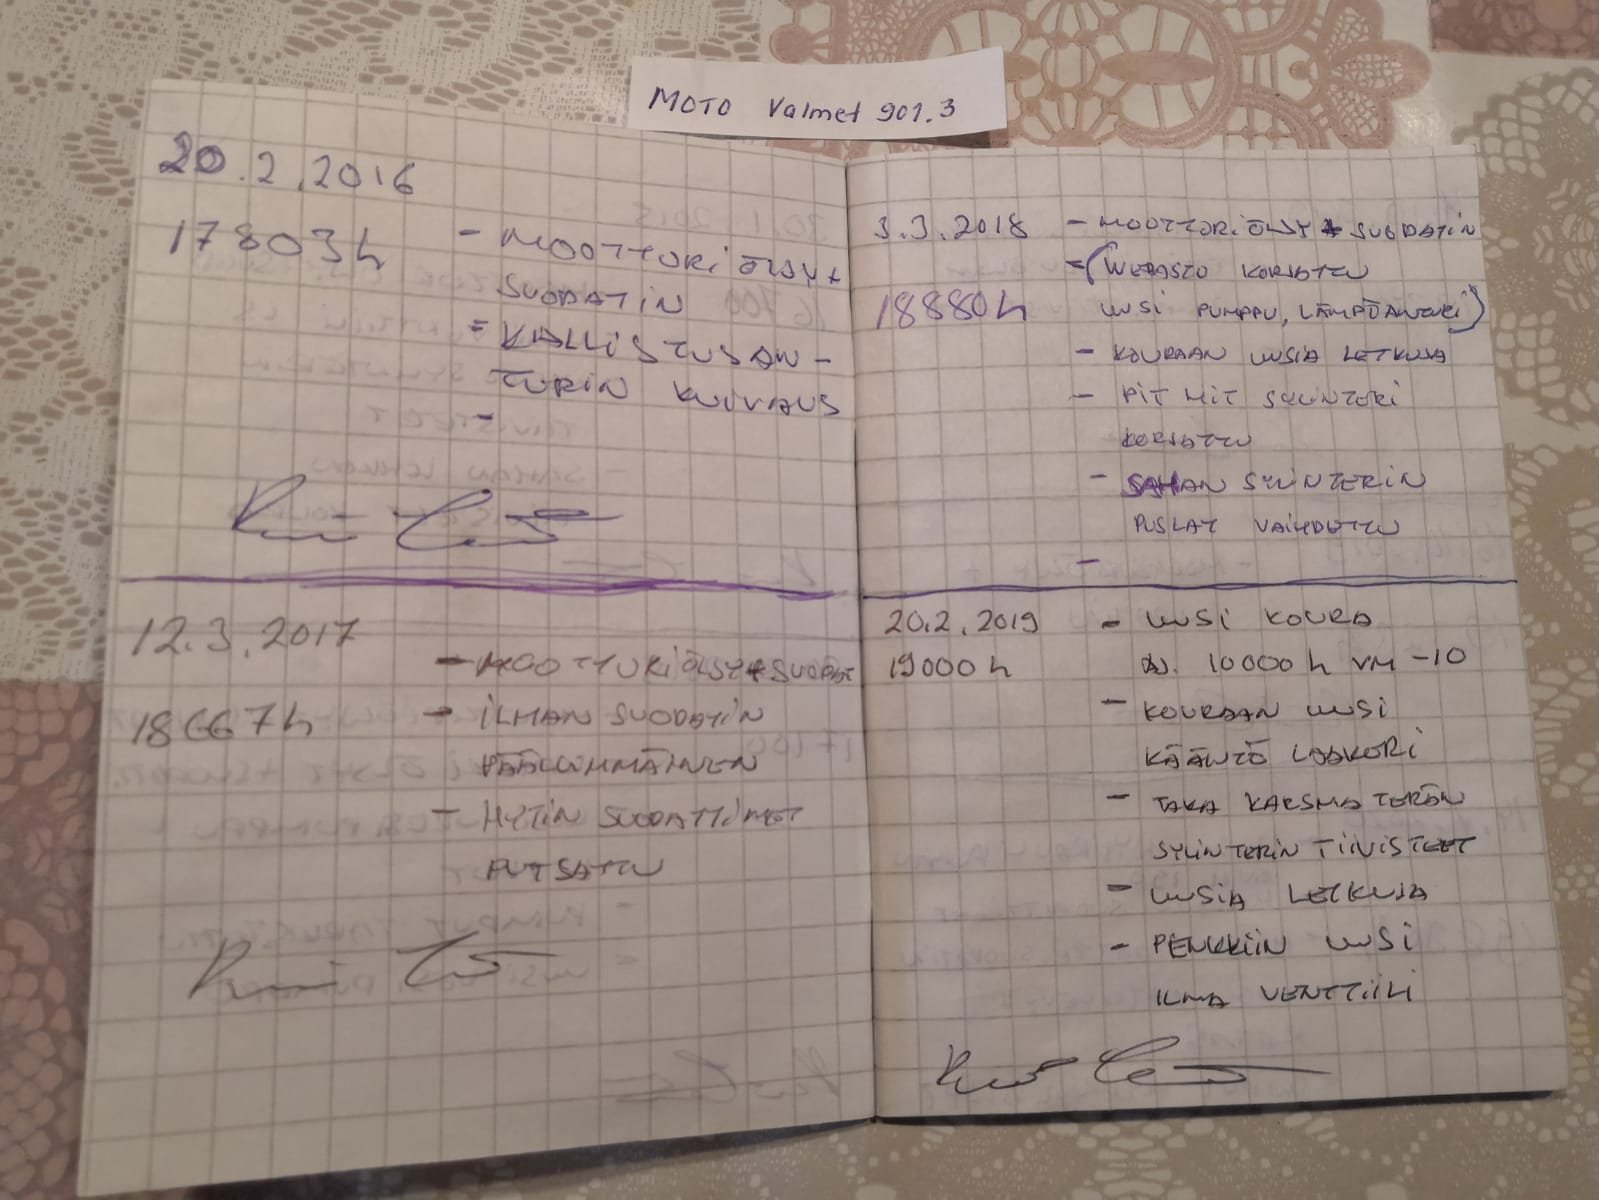 MOTO Valmet 901.3
20.2.2016
17803h - MOOTTORIÖLJY+
SUODATIN
= KALLISTUSAN-
TURIN KUIVAUS
-
12.3.2017
- MOOTTORIÖLJY+SUODAT
18667h - ILMAN SUODATIN
PÄÄLLIMMÄINEN
- HYTIN SUODATTIMET
PUTSATTU
3.3.2018 - MOOTTORIÖLJY + SUODATIN
=(WEBASTO KORJATTU
18880h UUSI PUMPPU, LÄMPÖANTURI)
- KOURAAN UUSIA LETKUJA
- PIT MIT SYLINTERI
KORJATTU
- SAHAN SYLINTERIN
PUSLAT VAIHDETTU
-
20.2.2019 - UUSI KOURA
19000h N. 10000h VM-10
- KOURAAN UUSI
KÄÄNTÖ LAAKERI
- TAKA KARSMATERÄN
SYLINTERIN TIIVISTEET
- UUSIA LETKUJA
- PENKKIIN UUSI
ILMA VENTTIILI